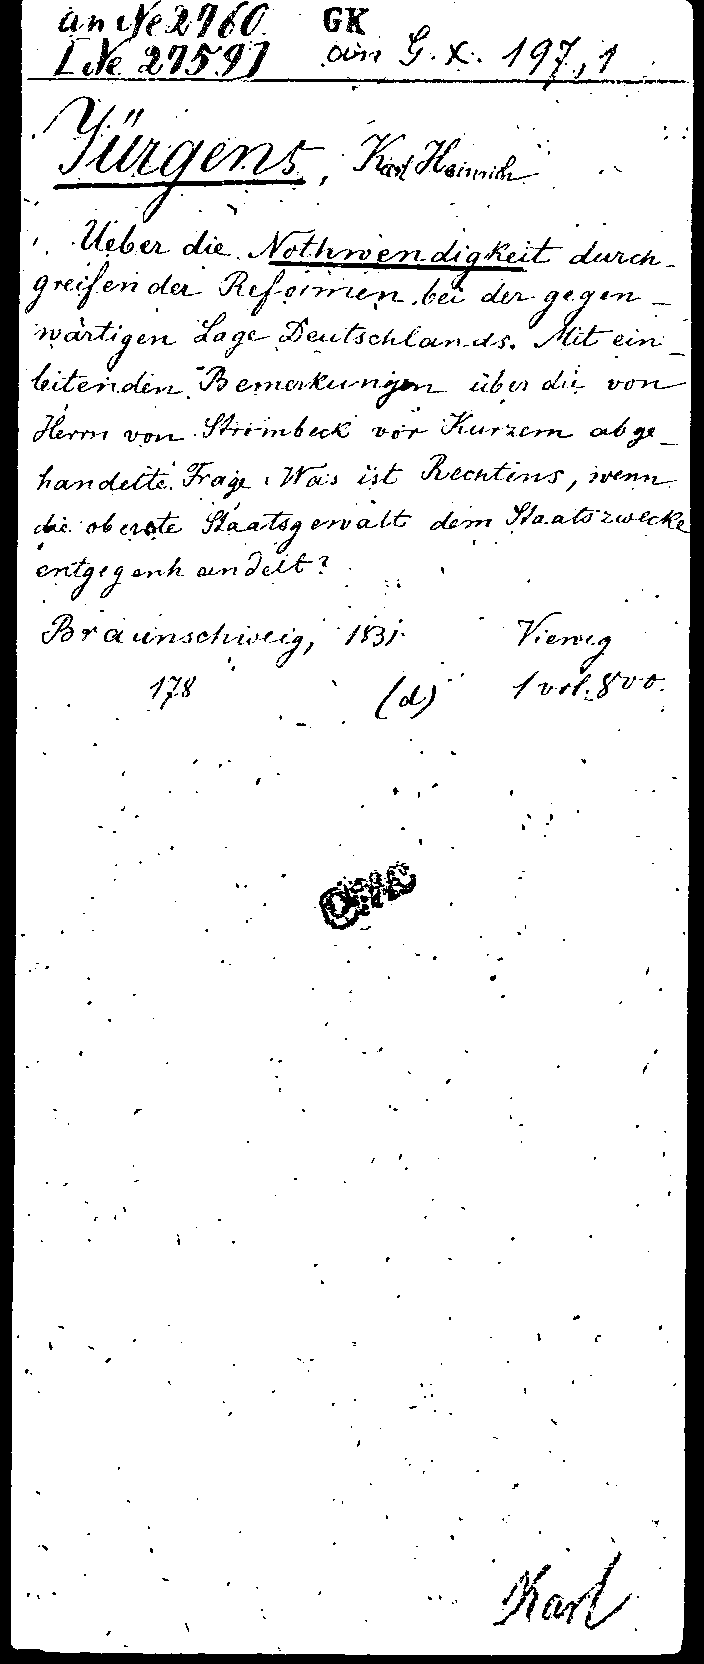 an Ne 2760 GK
I Ne 27597 an G. X. 197,1
Jürgens, Karl Heinrich
Ueber die Nothwendigkeit durch-
greifender Reformen bei der gegen-
wärtigen Lage Deutschlands. Mit ein-
leitenden Bemerkungen über die von
Herrn von Strombeck vor Kurzem abge-
handelte Frage: Was ist Rechtens, wenn
die oberste Staatsgewalt dem Staatszwecke
entgegenhandelt?
Braunschweig, 1831 Vieweg
178 (d) 1 vol. 8vo.
Karl